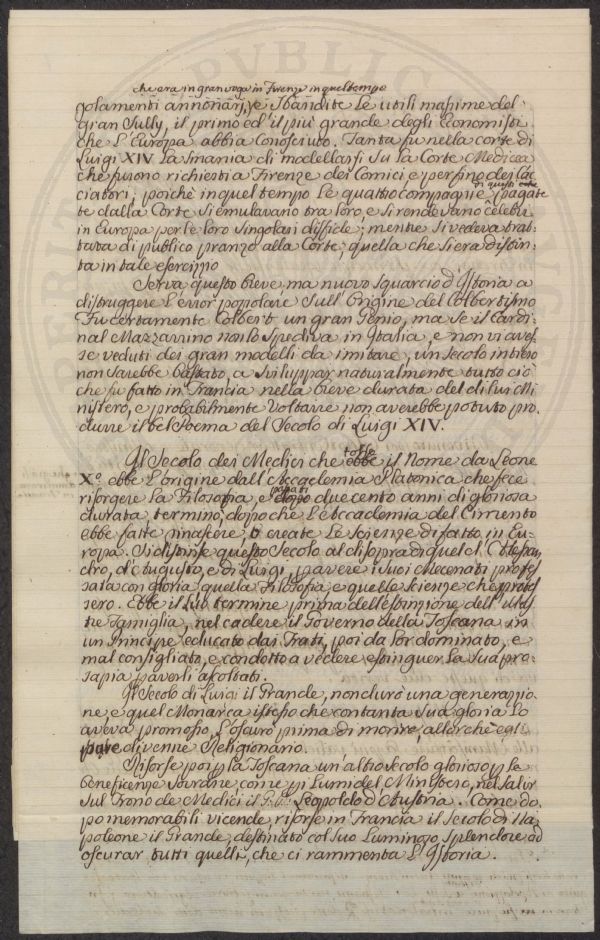 che era in gran voga in Firenze in quel tempo
golamenti annonarj, e sbandite le utili massime del
gran Sully, il primo ed il più grande degli Economisti
che l'Europa abbia conosciuto. Tanta fu nella corte di
Luigi XIV la smania di modellarsi su la Corte Medicea
che furono richiesti a Firenze dei Comici e perfino dei Cac=
ciatori; poichè in quel tempo le quattro compagnie di questi pagate
te dalla Corte si emulavano tra loro, e si rendevano celebri
in Europa per le loro singolari disfide; mentre si vedeva trat=
tata di publico pranzo alla Corte, quella che si era distin=
ta in tale esercizio
Serva questo breve, ma nuovo squarcio d'Istoria a
distruggere l'error popolare sull'Origine del Colbertismo
Fu certamente Colbert un gran Genio, ma se il Cardi=
nal Mazzarrino non lo spediva in Italia, e non vi aves=
se veduti dei gran modelli da imitare, un secolo intiero
non sarebbe bastato, a sviluppar naturalmente tutto ciò
che fu fatto in Francia nella breve durata del di lui Mi
nistero, e probabilmente Voltaire non averebbe potuto pro=
durre il bel Poema del Secolo di Luigi XIV.
Il Secolo dei Medici che tolse ebbe il Nome da Leone
X.º ebbe l'origine dall'Accademia Platonica che fece
risorgere la Filosofia, e dopo due cento anni di gloriosa
durata, terminò, dopo che l'Accademia del Cimento
ebbe fatte rinascere, o create le Scienze di fatto in Eu=
ropa. Si distinse questo Secolo al di sopra di quel d'Alessan=
dro, d'Augusto, e di Luigi, p avere i suoi Mecenati profes=
sata con gloria quella Filosofia, e quelle scienze che protes=
sero. Ebbe il suo termine prima dell'estinzione dell'Illus=
tre Famiglia, nel cadere il Governo della Toscana in
un Principe educato dai Frati, poi da lor dominato, e
mal consigliato, e condotto a vedere estinguer la sua pro=
sapia p averli ascoltati.
Il Secolo di Luigi il Grande, non durò una generazio=
ne, e quel Monarca istesso che con tanta sua gloria lo
aveva promosso, l'oscurò prima di morire, allorchè egli
pure divenne Religionario.
Risorse poi p la Toscana un'altro Secolo glorioso p le
beneficenze sovrane con i Lumi del Ministero, nel salir
sul Trono de Medici il G. D. Leopoldo d'Austria. Come do=
po memorabili vicende, risorse in Francia il Secolo di Na
poleone il Grande, destinato col suo luminoso splendore ad
oscurar tutti quelli, che ci rammenta l'Istoria.